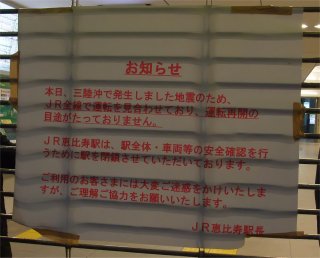 お知らせ
本日、三陸沖で発生しました地震のため、
ＪＲ全線で運転を見合わせており、運転再開の
目途がたっておりません。
ＪＲ恵比寿駅は、駅全体・車両等の安全確認を行
うために駅を閉鎖させていただいております。
ご利用のお客さまには大変ご迷惑をかけいたしま
すが、ご理解ご協力をお願いいたします。
ＪＲ恵比寿駅長